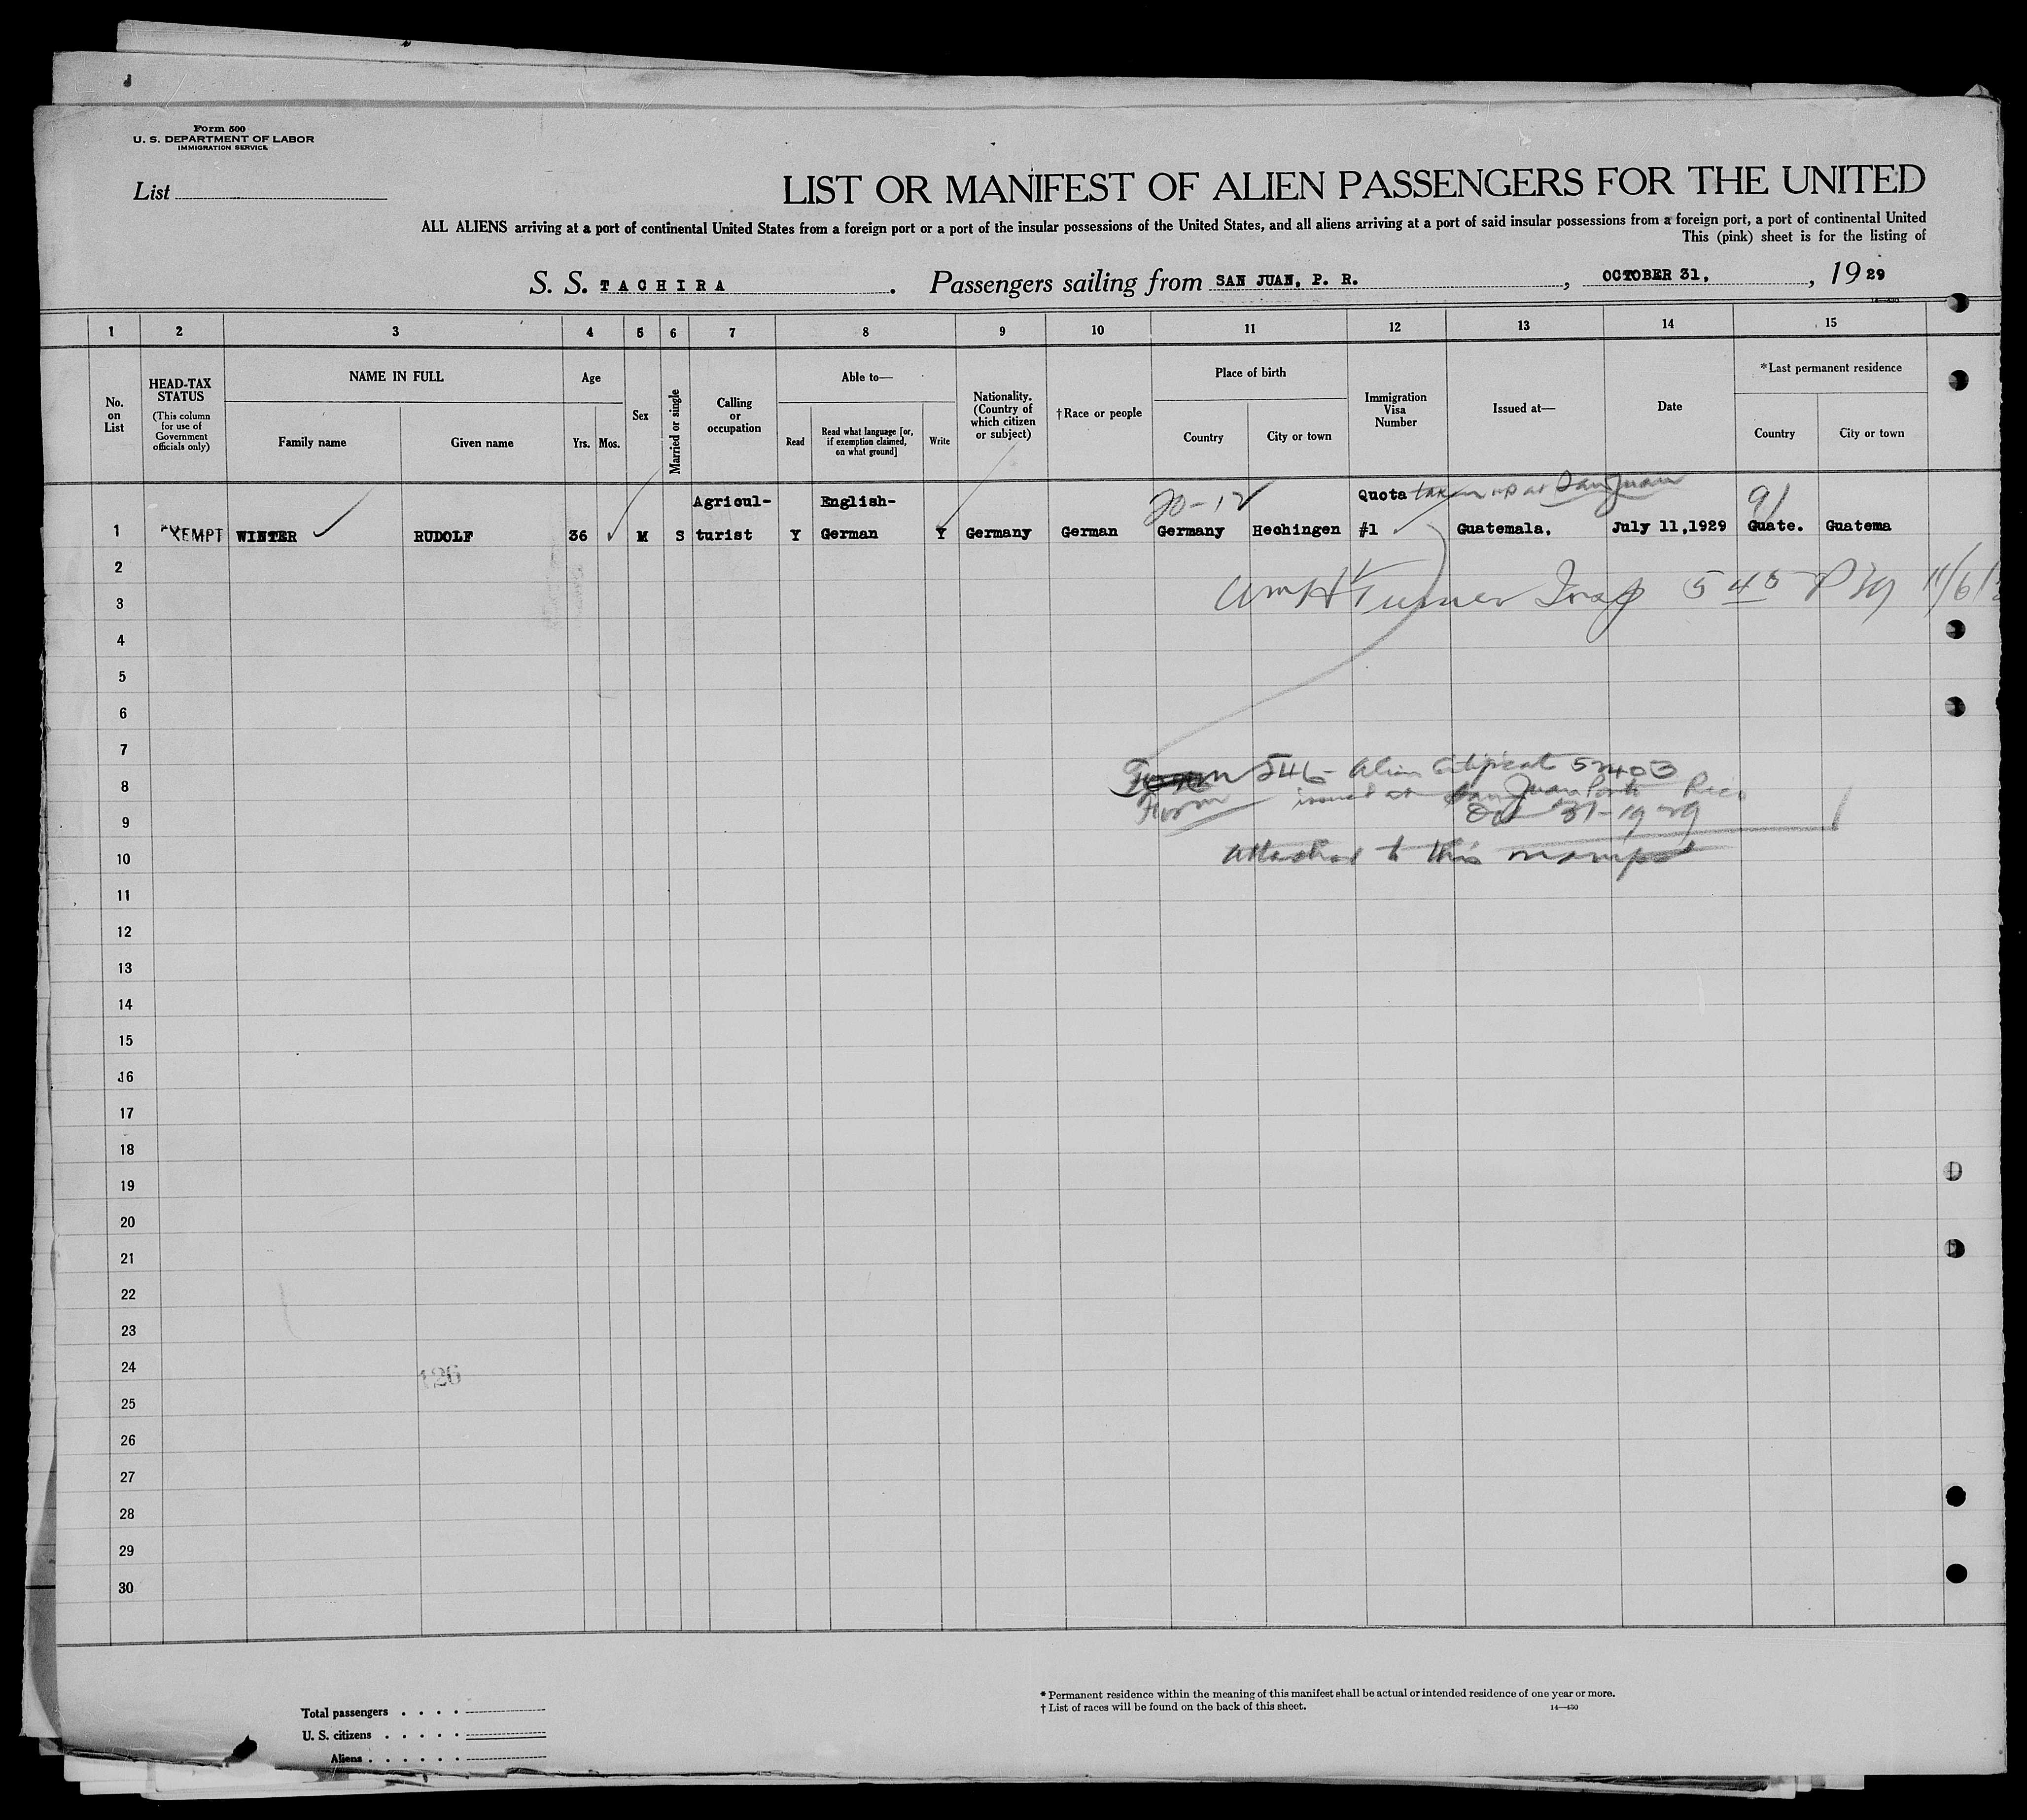 Form 500
U. S. DEPARTMENT OF LABOR
IMMIGRATION SERVICE
List
LIST OR MANIFEST OF ALIEN PASSENGERS FOR THE UNITED
ALL ALIENS arriving at a port of continental United States from a foreign port or a port of the insular possessions of the United States, and all aliens arriving at a port of said insular possessions from a foreign port, a port of continental United
This (pink) sheet is for the listing of
S. S. TACHIRA. Passengers sailing from SAN JUAN, P. R., OCTOBER 31, , 19 29
1 2 3 4 5 6 7 8 9 10 11 12 13 14 15
No. on List
HEAD-TAX STATUS
(This column for use of Government officials only)
NAME IN FULL
Family name
Given name
Age
Yrs. Mos.
Sex
Married or single
Calling or occupation
Able to—
Read
Read what language [or, if exemption claimed, on what ground]
Write
Nationality. (Country of which citizen or subject)
†Race or people
Place of birth
Country
City or town
Immigration Visa Number
Issued at—
Date
*Last permanent residence
Country
City or town
Agricul- English- 20-12 Quota taken up at San Juan 91
1 EXEMPT WINTER RUDOLF 36 M S turist Y German Y Germany German Germany Hechingen #1 Guatemala, July 11,1929 Guate. Guatema
2
Wm H Turner Insp 5 45 PM 11/6/
3
4
5
6
7
Form 546 Alien Certificat
8
Form issued at San Juan Porto Rico
9
Oct 31-1929
10
Attached to this manifest
11
12
13
14
15
16
17
18
19
20
21
22
23
24
126
25
26
27
28
29
30
Total passengers
U. S. citizens
Aliens
* Permanent residence within the meaning of this manifest shall be actual or intended residence of one year or more.
† List of races will be found on the back of this sheet.
14—430